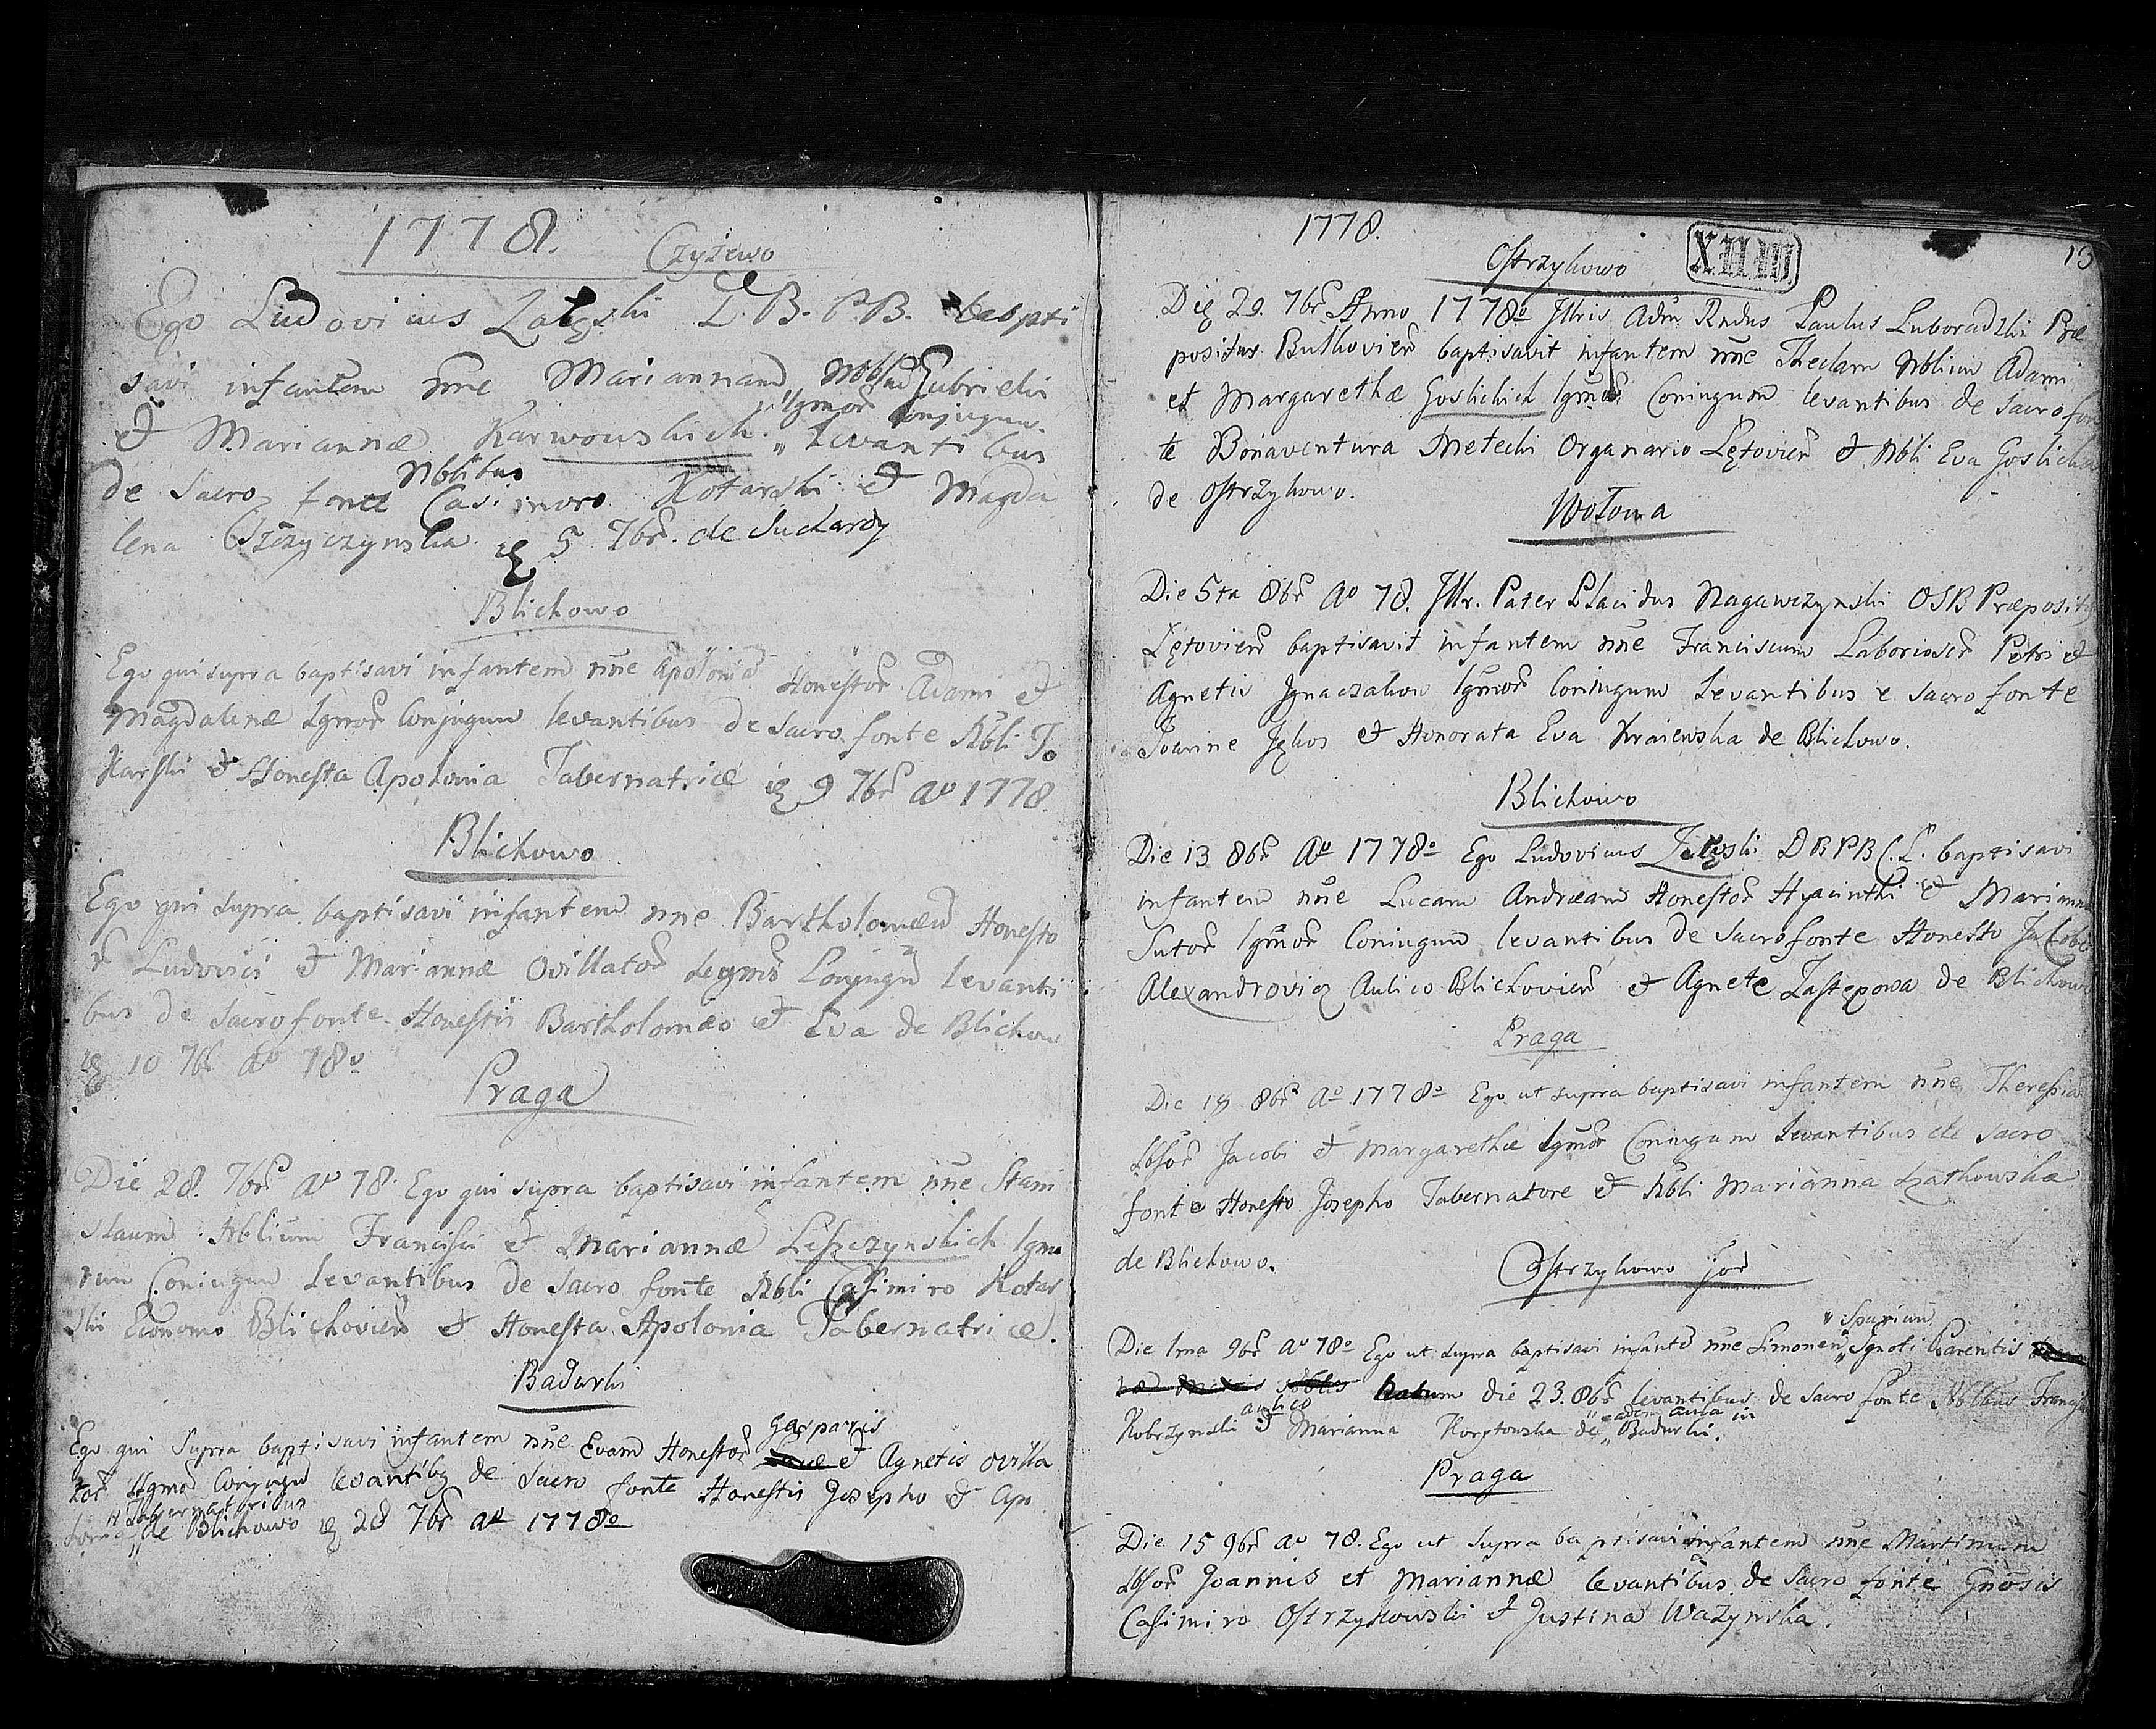 1778.
Czyżewo
Ego Ludovicus D. B. P. B. bapti
savi infantem nne Mariannam Nobliu Gabrielis
Lgmor Conjugum
& Mariannæ Karwowskich levantibus
Nblibus
de Sacro fonte Casimiro Kotarski & Magda
lena 5 7br. de Suchardy
Blichowo
Ego qui supra baptisavi infantem nne Apolonia Honestor Adami &
Magdalenæ Lgmor Conjugum levantibus de Sacro fonte Nbli Jo
Karski & Honesta Apolonia Tabernatricæ 9 7br Ao 1778.
Blichowo
Ego qui supra baptisavi infantem nne Bartholomæu Honesto
r Ludovici & Mariannæ Ovillator Legmor Conjugu levanti
bus de Sacro fonte Honestis Bartholomæo & Eva de Blichow
10 7br ao 78o
Praga
Die 28. 7br Ao 78. Ego qui supra baptisavi infantem nne Stani
slaum Nblium Francisci & Mariannæ Leszczynskich lgmo
rum Coniugum Levantibus de Sacro fonte Nbli Casimiro Kotar
ski Economo Blichovien & Honesta Apolonia Tabernatricæ.
Badurki
Gasparis
Ego qui supra baptisavi infantem nne Evam Honestor & Agnetis ovilla
tor Lgmor Conjugu levantibq de Sacro fonte Honestis Josepho & Apo
Tabernatoribus
lonia de Blichowo 28 7br ao 1778o
1778.
Ostrzykowo
XIIII
13
Die 29. 7br Anno 1778o Illris Adm Rndus Paulus Luboradzki Præ
positus Bulkovien baptisavit infantem nne Theclam Nblium Adami
et Margarethæ Goslickich lgmor Coniugum levantibus de Sacro fon
te Bonaventura Metecki Organario Lętovien & Nbli Eva Goslicka
de Ostrzykowo.
Wołowa
Die 5ta 8br Ao 78. Illr. Pater Placidus Nagawczynski OSB Præpositq
Lętovien baptisavit infantem nne Franciscum Laboriosor Petri &
Agnetis Ignaczakow lgmor Coniugum Levantibus e Sacro fonte
& Honorata Eva Kraiewska de Blichowo.
Blichowo
Die 13 8br Ao 1778o Ego Ludovicus DBPB C.L. baptisavi
infantem nne Lucam Andræam Honestor Hyacinthi & Mariannæ
Sutor lgmor Coniugum levantibus de Sacro fonte Honesto Jacobo
Alexandrovicz Aulico Blichovien & Agnete Zastępowa de Blichowo
Praga
Die 18 8br Ao 1778o Ego ut supra baptisavi infantem nne Theressiam
Lbsor Jacobi & Margarethæ lgmor Coniugum Levantibus de Sacro
fonte Honesto Josepho Tabernatore & Nbli Marianna
de Blichowo.
Ostrzykowo
Spurium
Die 1ma 9br Ao 78o Ego ut supra baptisavi infante nne Simonem Ignoti Parentis
natum die 23. 8br levantibus de Sacro fonte Nblibus Francisco
aulico eadem aula in
Kobrzynski & Marianna Korytowska de Badurki.
Praga
Die 15 9br ao 78. Ego ut supra baptisavi infantem nne Martinum
Lbsor Joannis et Mariannæ levantibus de Sacro fonte Gnosis
Casimiro Ostrzykowski & Justina Wazynska.